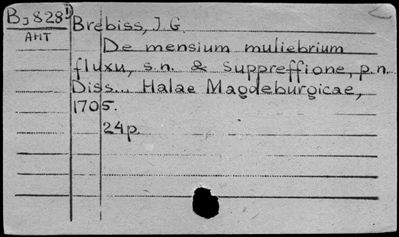 Bj828¹⁾
AHT
Brebiss, J.G.
De mensium muliebrium
fluxu, s.n. & suppreffione, p.n.
Diss... Halae Magdeburgicae,
1705.
24p.